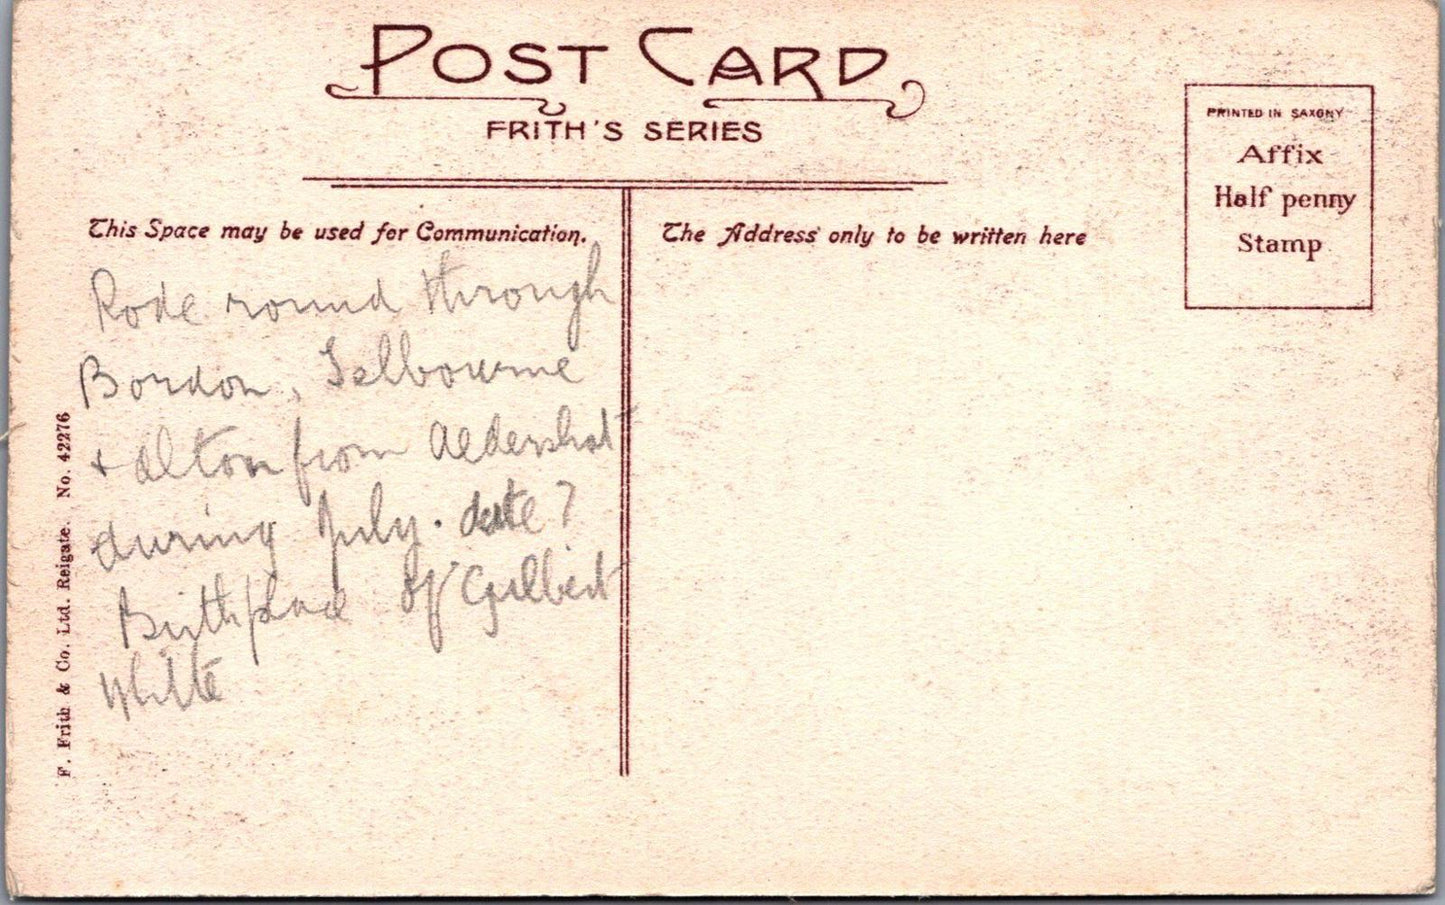 POST CARD
FRITH'S SERIES
PRINTED IN SAXONY
Affix
Half penny
Stamp
This Space may be used for Communication.
The Address only to be written here
Rode round through
Bordon, Selbourne
+ Alton from Aldershot
during July. date?
Birthplace of Gilbert
White
F. Frith & Co. Ltd. Reigate. No. 42276